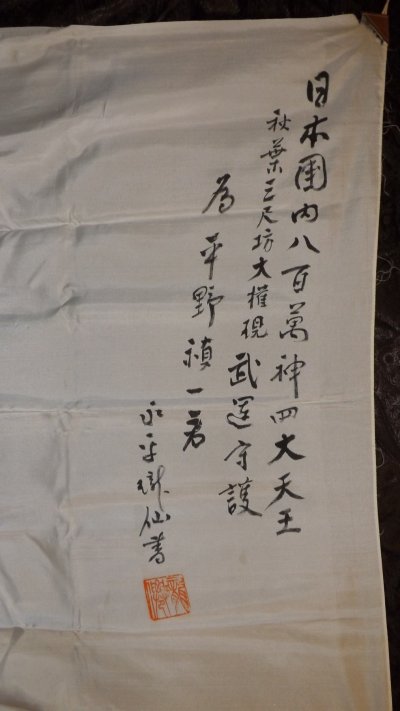 日本國内八百萬神四大天王
秋葉三尺坊大權現武運守護
為平野禎一君
永平瓏仙書